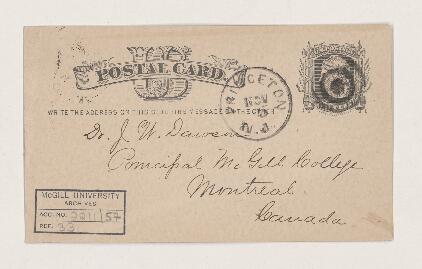 POSTAL CARD.
WRITE THE ADDRESS ON THIS SIDE - THE MESSAGE ON THE OTHER
PRINCETON
NOV
N.J.
Dr. J. W. Dawson
Principal McGill College
Montreal
Canada
McGILL UNIVERSITY
ARCHIVES
ACC. NO.
REF. 33